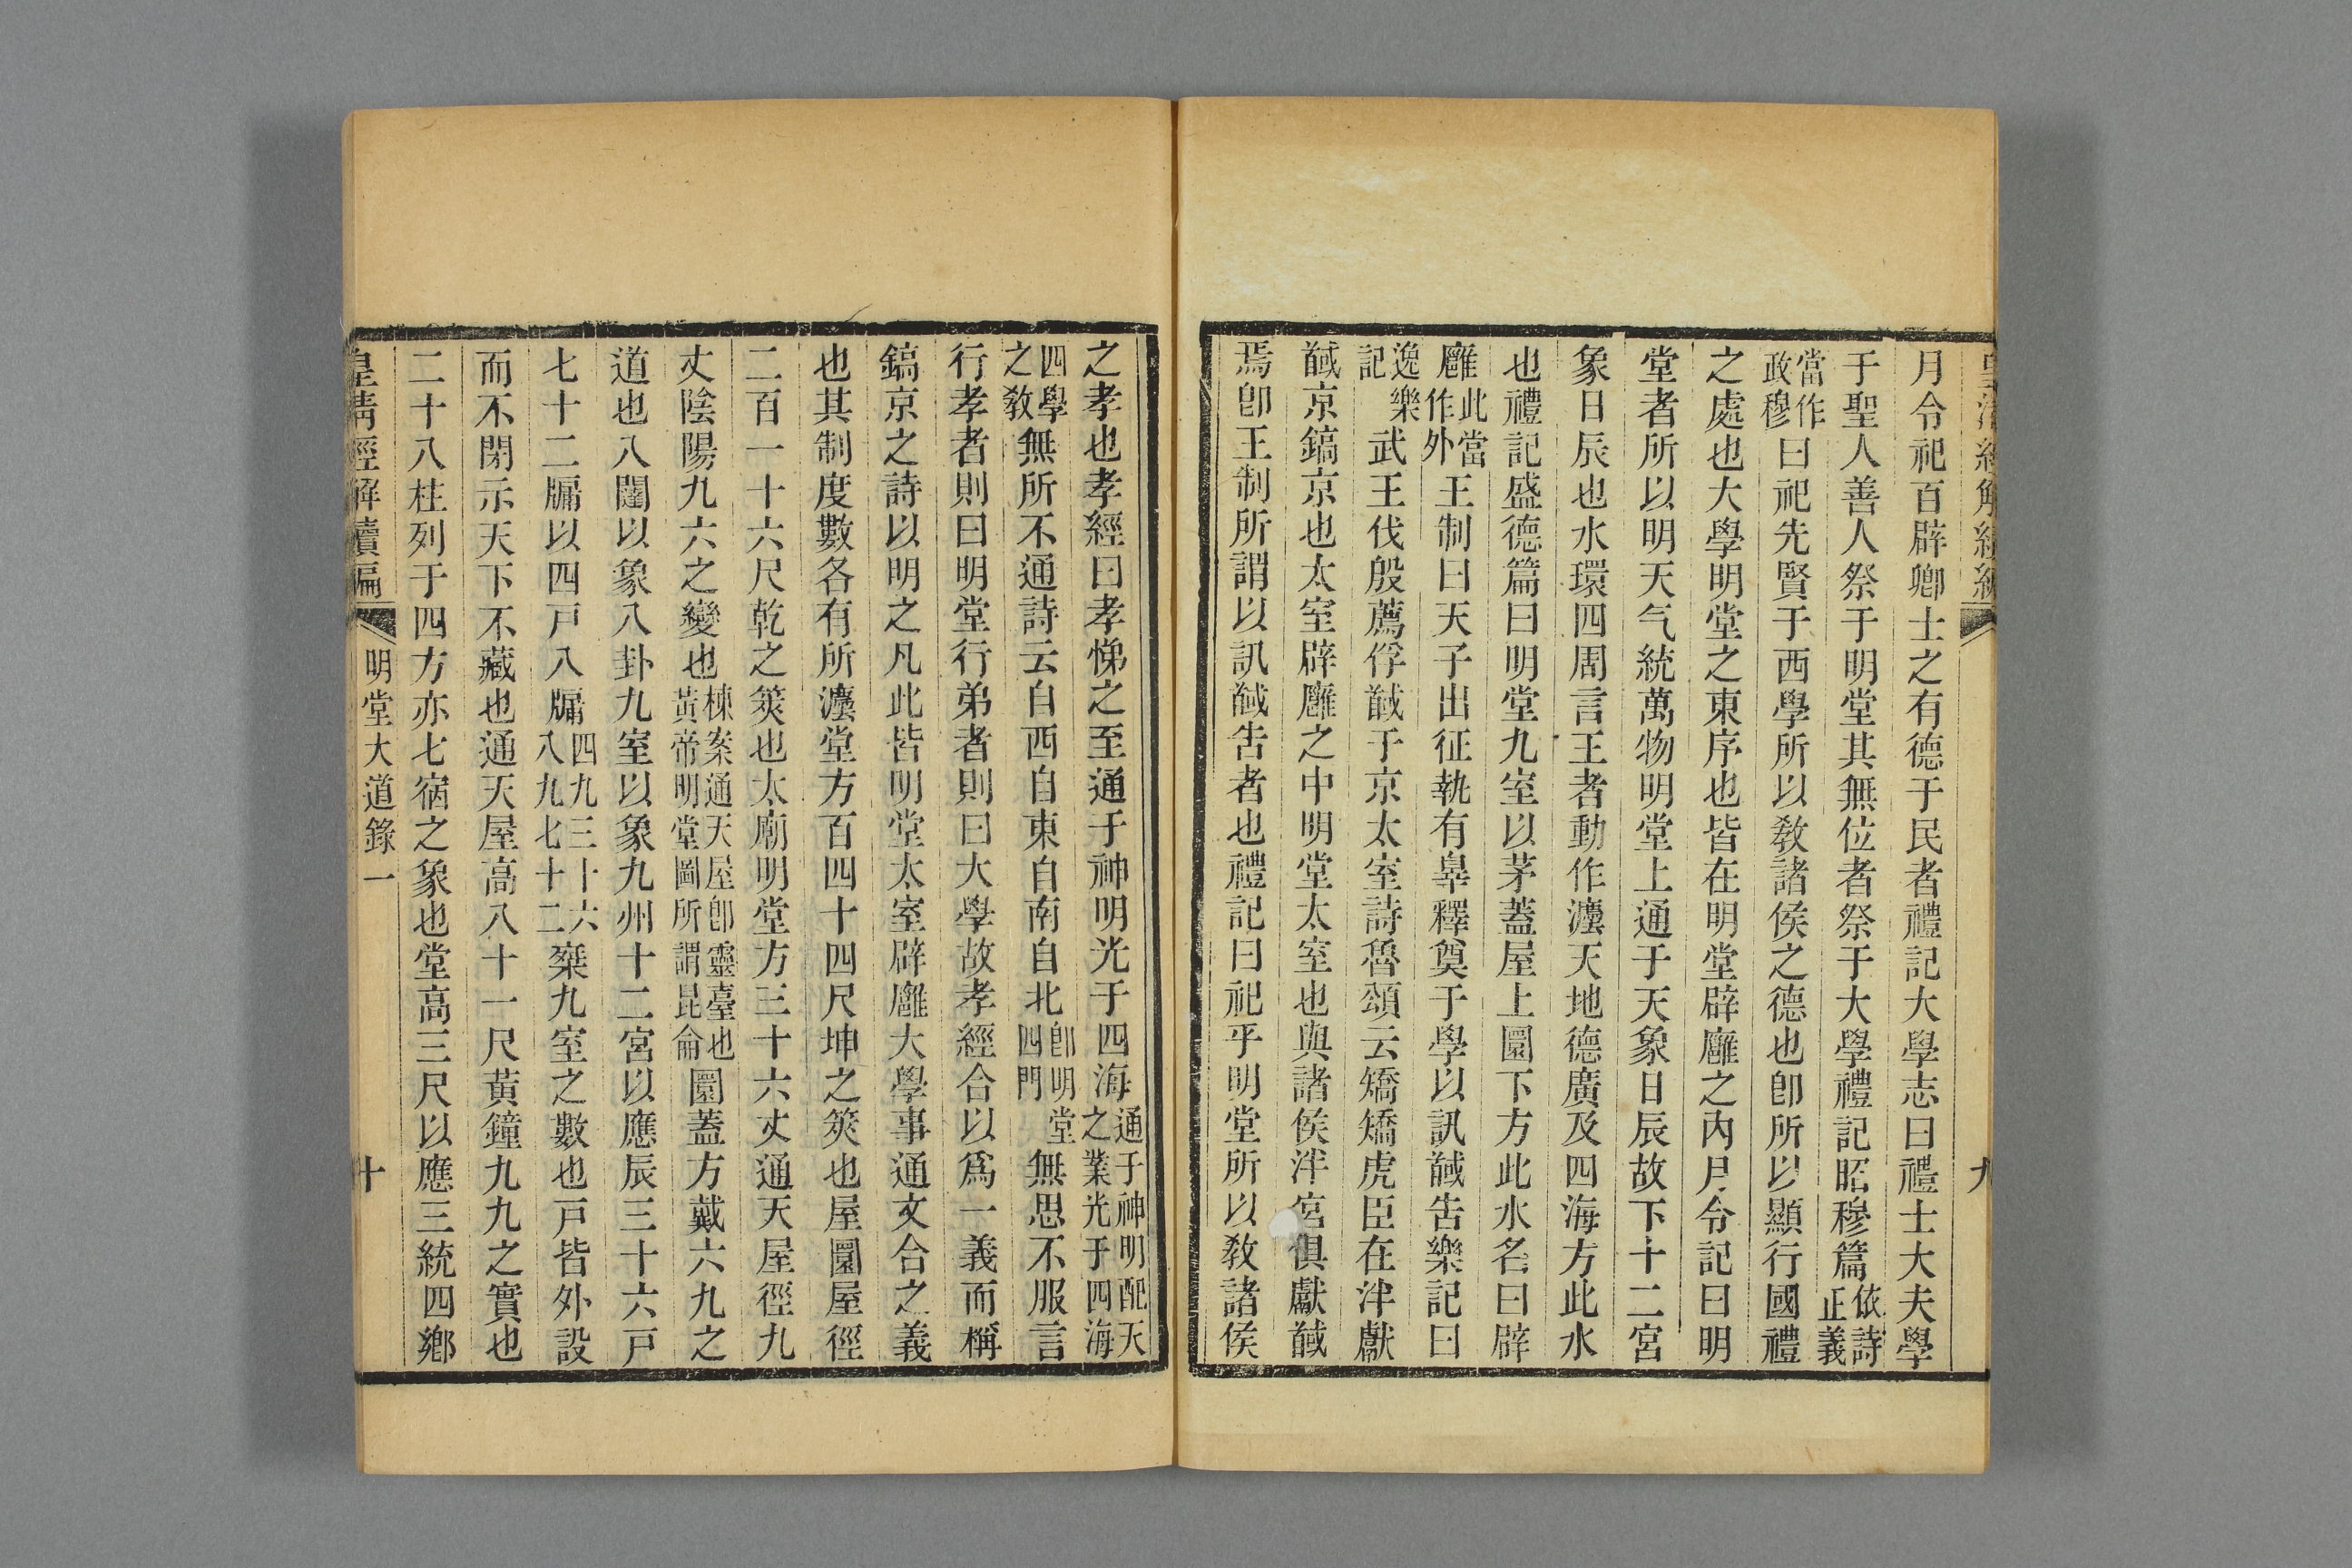 皇清經解續編
九
月令祀百辟卿士之有德于民者禮記大學志曰禮士大夫學
于聖人善人祭于明堂其無位者祭于大學禮記昭穆篇依詩正義
當作政穆曰祀先賢于西學所以敎諸侯之德也卽所以顯行國禮
之處也大學明堂之東序也皆在明堂辟廱之內月令記曰明
堂者所以明天气統萬物明堂上通于天象日辰故下十二宮
象日辰也水環四周言王者動作灋天地德廣及四海方此水
也禮記盛德篇曰明堂九室以茅蓋屋上圜下方此水名曰辟
廱此當作外王制曰天子出征執有辠釋奠于學以訊馘告樂記曰
逸樂記武王伐殷薦俘馘于京太室詩魯頌云矯矯虎臣在泮獻
馘京鎬京也太室辟廱之中明堂太室也與諸侯泮宮俱獻馘
焉卽王制所謂以訊馘告者也禮記曰祀乎明堂所以敎諸侯
之孝也孝經曰孝悌之至通于神明光于四海通于神明配天之業光于四海
四學之敎無所不通詩云自西自東自南自北卽明堂四門無思不服言
行孝者則曰明堂行弟者則曰大學故孝經合以爲一義而稱
鎬京之詩以明之凡此皆明堂太室辟廱大學事通文合之義
也其制度數各有所灋堂方百四十四尺坤之筴也屋圜屋徑
二百一十六尺乾之筴也太廟明堂方三十六丈通天屋徑九
丈陰陽九六之變也棟案通天屋卽靈臺也黃帝明堂圖所謂昆侖圜蓋方戴六九之
道也八闥以象八卦九室以象九州十二宮以應辰三十六戸
七十二牖以四戸八牖四九三十六八九七十二椉九室之數也戸皆外設
而不閉示天下不藏也通天屋高八十一尺黃鐘九九之實也
二十八柱列于四方亦七宿之象也堂高三尺以應三統四鄕
皇清經解續編
明堂大道錄一
十